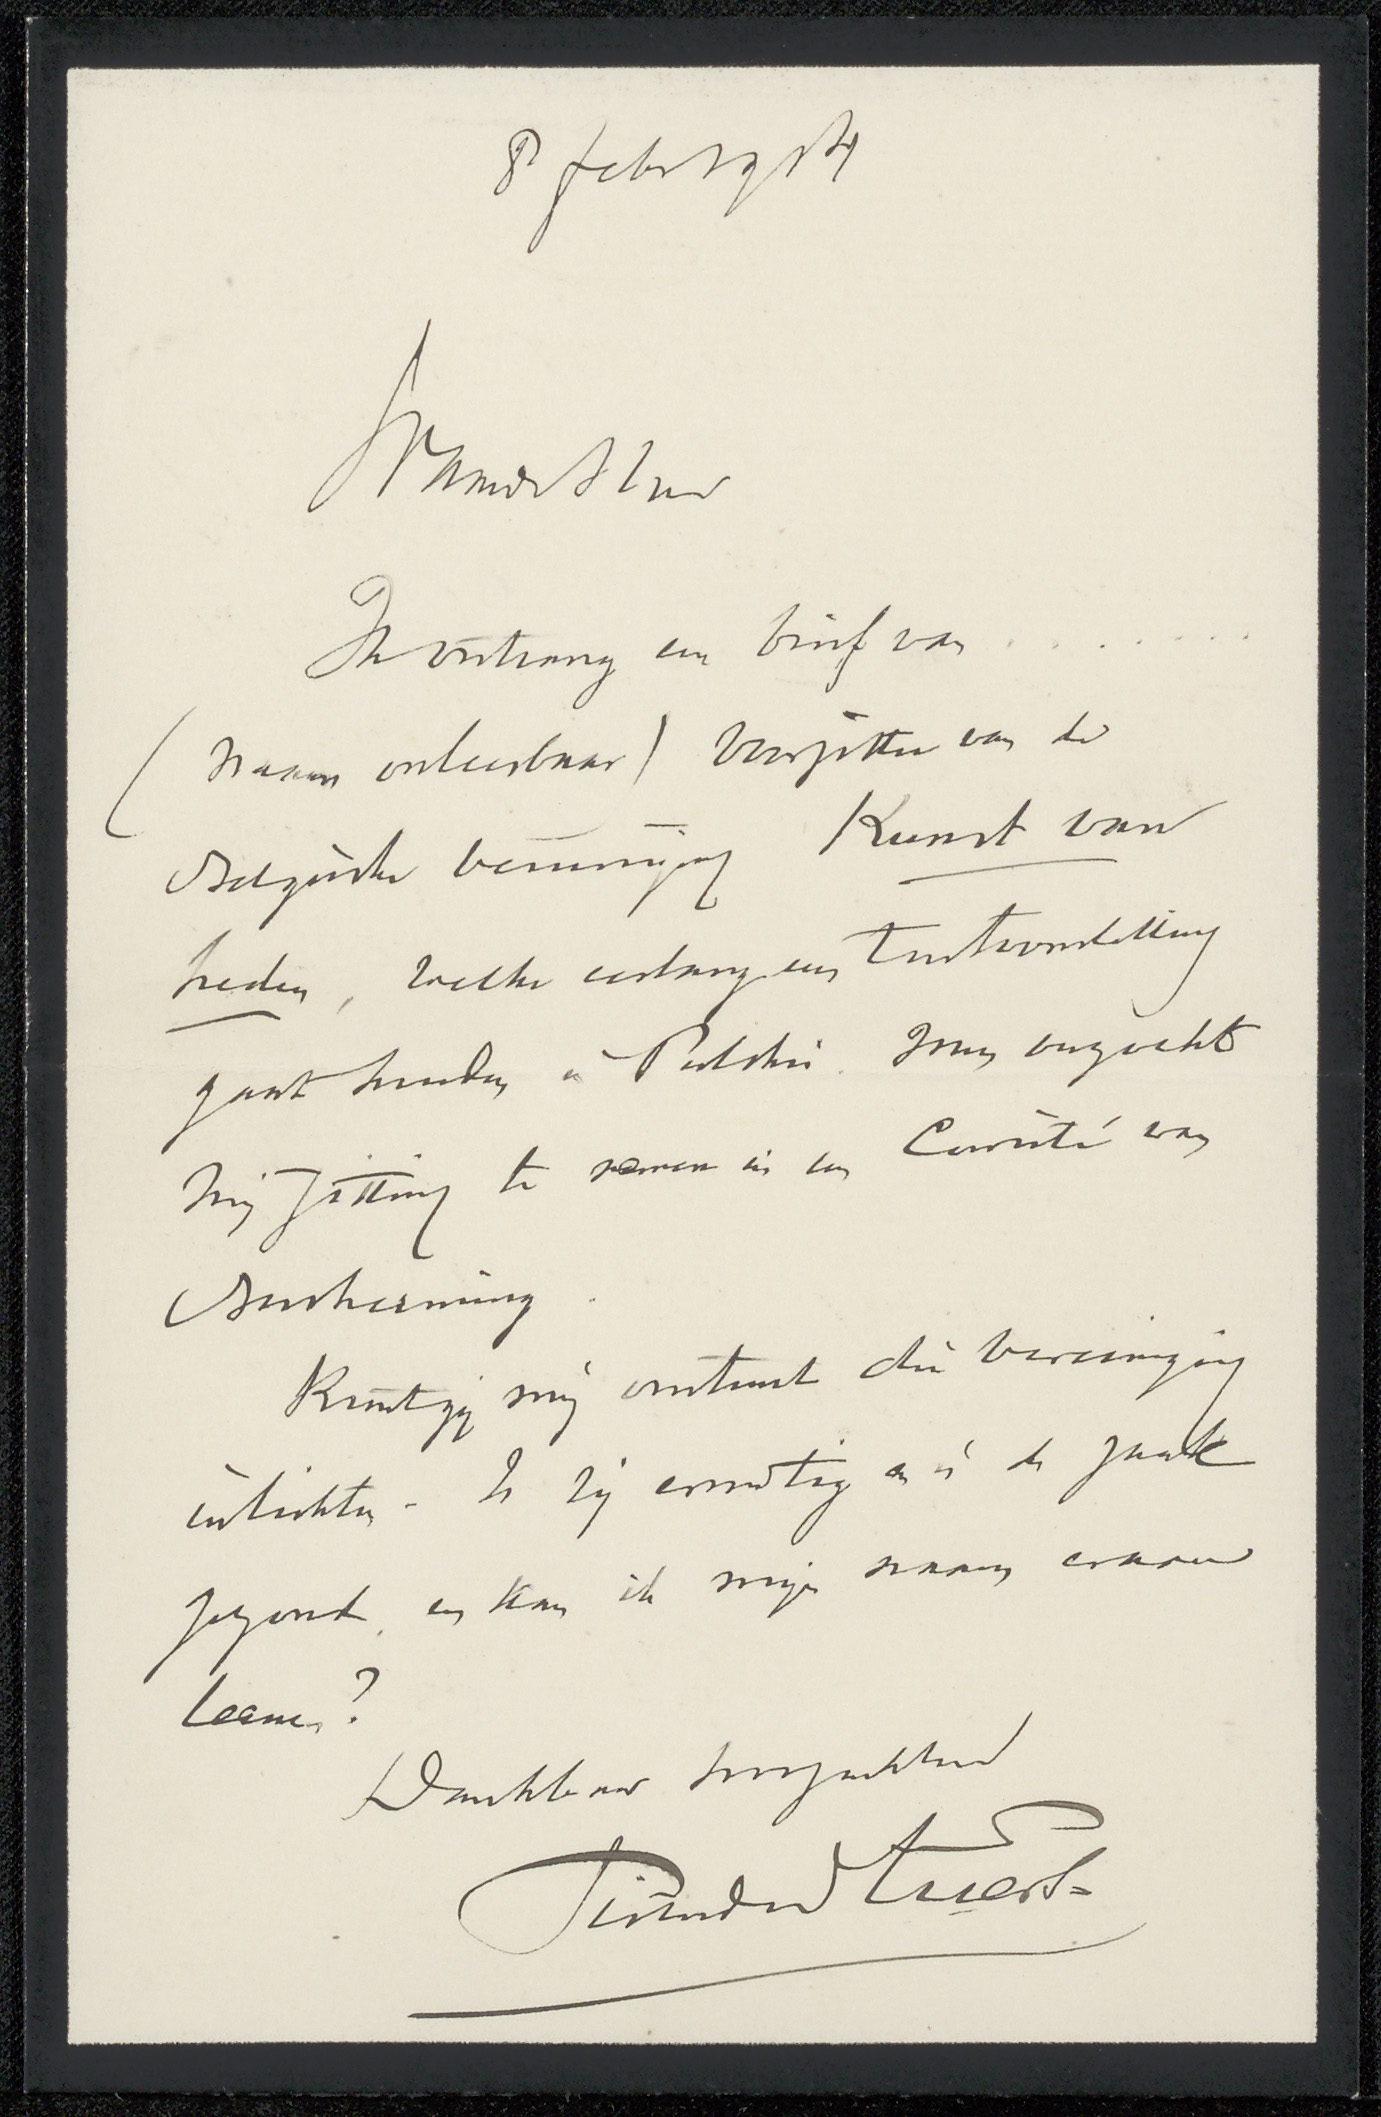 8 febr 1914
Waarde Heer
Ik ontvang een brief van . . . . . . .
(naam onleesbaar) Voorzitter van de
Belgische vereeniging Kunst van
heden, welke eerlang een Tentoonstelling
gaat houden in Pulchri. Men verzocht
mij zitting te nemen in een Comité van
Bescherming.
Kunt gij mij omtrent die vereeniging
inlichten - Is zij ernstig en is de zaak
gezond, en kan ik mijn naam eraan
leenen?
Dankbaar hoogachtend